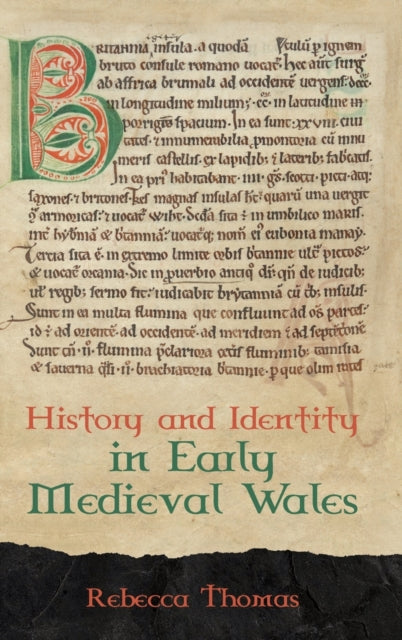 BRITANNIA insula. a quodā
bruto consule romano uocat᷒. Hec aut̄ surg᷒
ab affrica brumali ad occidentē uergens. dccc.
in longitudine milium; cc. in latitudine
porrigit᷒ spacium. In ea sunt. xxviii. ciui
tates. & innumerabilia pmontoria cū innu
meris castellis. ex lapidib; & laterib; fabricatis.
In ea pri᷒ habitabant. iiii. g̃s. scoti. picti. atq;
saxones. & britones. Tres magnas insulas h̃t. quarū una uergit
armoricas. & uocat᷒ wiht. Scd̃a sita ē in umbilico maris.
int̄ hyb̃niā & b̃tanniā. uocat᷒q; nom̄ ei᷒ eubonia manay.
Tercia sita ē. in extremo limite orbis b̃tannie ult᷒ pictos.
& uocat᷒ orcania. Sic in prouerbio antiq̄ dr̄. qn̄ de iudicib;
ul᷒ regib; sermo fit. iudicabit brytanniā cū insulis.
Sunt in ea multa flumina que confluunt ad om̄s partes.
id ē ad orientē. ad occidentē. ad meridiem & ad septētrionē
Sunt tn̄. ii. flumina pclariora cet̄is fluminib; tamisia
& sauerna q̄si. ii. brachiatoria b̃tannie. p que olim rates
History and Identity
in Early
Medieval Wales
Rebecca Thomas